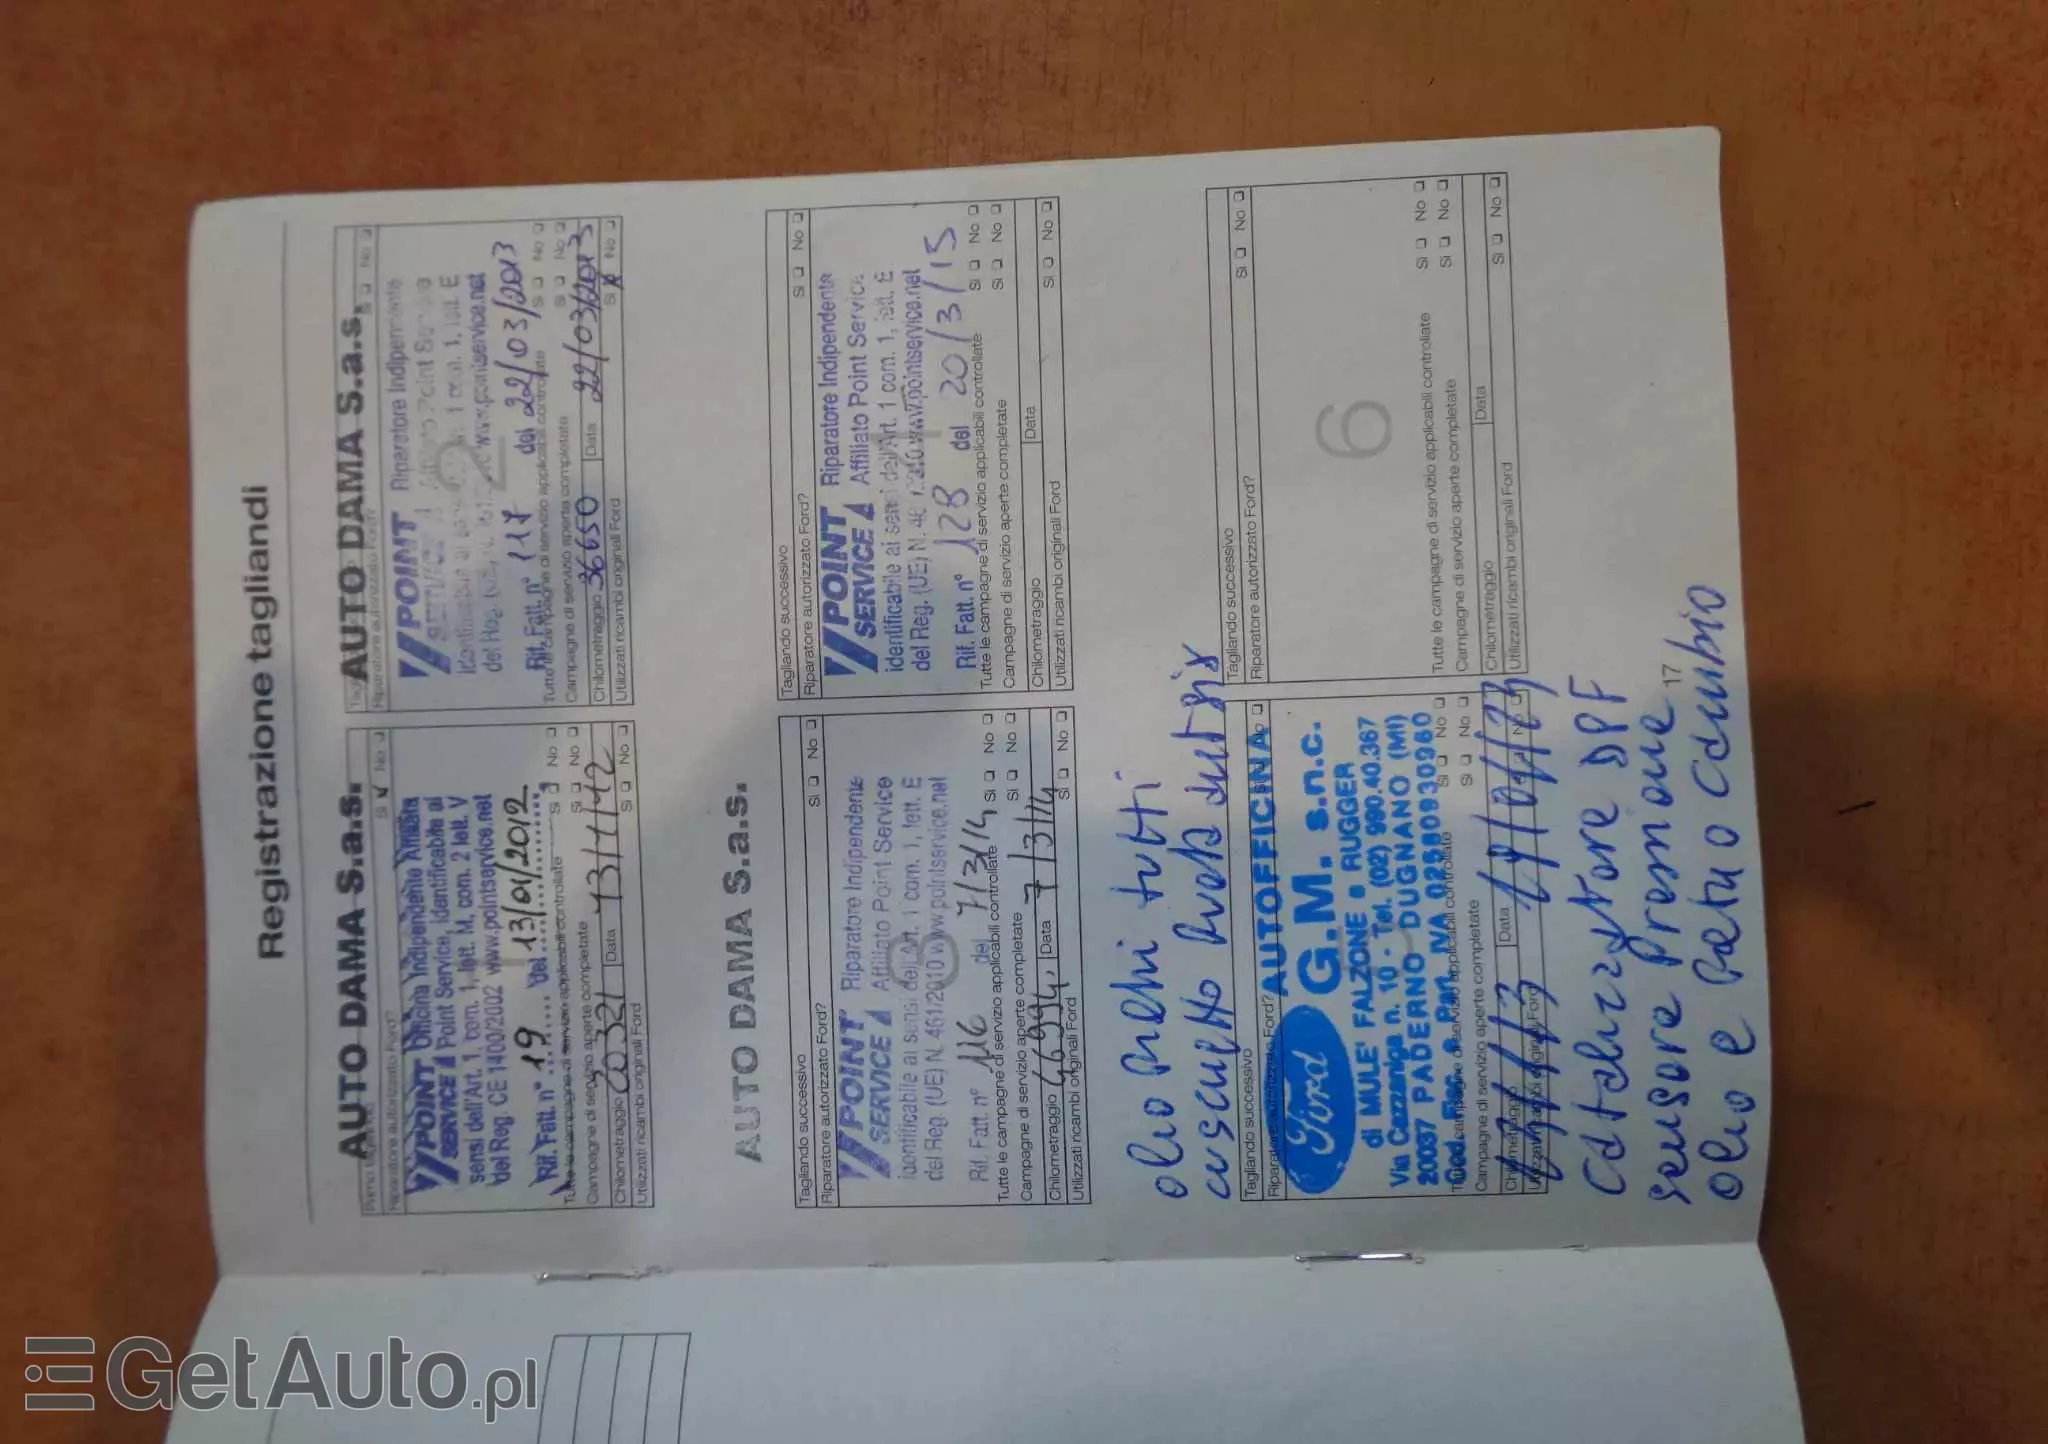 Registrazione tagliandi
AUTO DAMA S.a.s.
Riparatore autorizzato Ford?
Sì No
POINT SERVICE Officina Indipendente Affiliata
Point Service, identificabile ai
sensi dell'Art. 1, com. 1, lett. M, com. 2 lett. V
del Reg. CE 1400/2002 www.pointservice.net
Rif. Fatt. n° 19 del 13/01/2012
Campagne di servizio aperte completate Sì No
Chilometraggio Data 13/1/12
Utilizzati ricambi originali Ford Sì No
AUTO DAMA S.a.s.
Riparatore autorizzato Ford?
Sì No
POINT SERVICE Riparatore Indipendente
Affiliato Point Service
Rif. Fatt. n° 117 del 22/03/2013
Tutte le campagne di servizio applicabili controllate Sì No
Campagne di servizio aperte completate Sì No
Chilometraggio 36650 Data 22/03/2013
Utilizzati ricambi originali Ford Sì No
AUTO DAMA S.a.s.
Tagliando successivo
Riparatore autorizzato Ford? Sì No
POINT SERVICE Riparatore Indipendente
Affiliato Point Service
identificabile ai sensi dell'Art. 1 com. 1, lett. E
del Reg. (UE) N. 461/2010 www.pointservice.net
Rif. Fatt. n° 116 del 7/3/14
Tutte le campagne di servizio applicabili controllate Sì No
Campagne di servizio aperte completate Sì No
Chilometraggio 46994, Data 7/3/14
Utilizzati ricambi originali Ford Sì No
Tagliando successivo
Riparatore autorizzato Ford? Sì No
POINT SERVICE Riparatore Indipendente
Affiliato Point Service
identificabile ai sensi dell'Art. 1 com. 1, lett. E
del Reg. (UE) N. 461/2010 www.pointservice.net
Rif. Fatt. n° 128 del 20/3/15
Tutte le campagne di servizio applicabili controllate Sì No
Campagne di servizio aperte completate Sì No
Chilometraggio Data
Utilizzati ricambi originali Ford Sì No
olio tutti
cuscinetto Ruota
Tagliando successivo
Riparatore autorizzato Ford? Sì No
AUTOFFICINA
Ford G.M. s.n.c.
di MULE' FALZONE e RUGGERI
Via Cazzaniga n. 10 - Tel. (02) 990.40.367
20037 PADERNO DUGNANO (MI)
Cod. Fisc. e Part. IVA 02580930960
Campagne di servizio aperte completate Sì No
Chilometraggio Data
Utilizzati ricambi originali Ford Sì No
Tagliando successivo
Riparatore autorizzato Ford? Sì No
6
Tutte le campagne di servizio applicabili controllate Sì No
Campagne di servizio aperte completate Sì No
Chilometraggio Data
Utilizzati ricambi originali Ford Sì No
DPF
sensore Pressione
olio e
17
GetAuto.pl